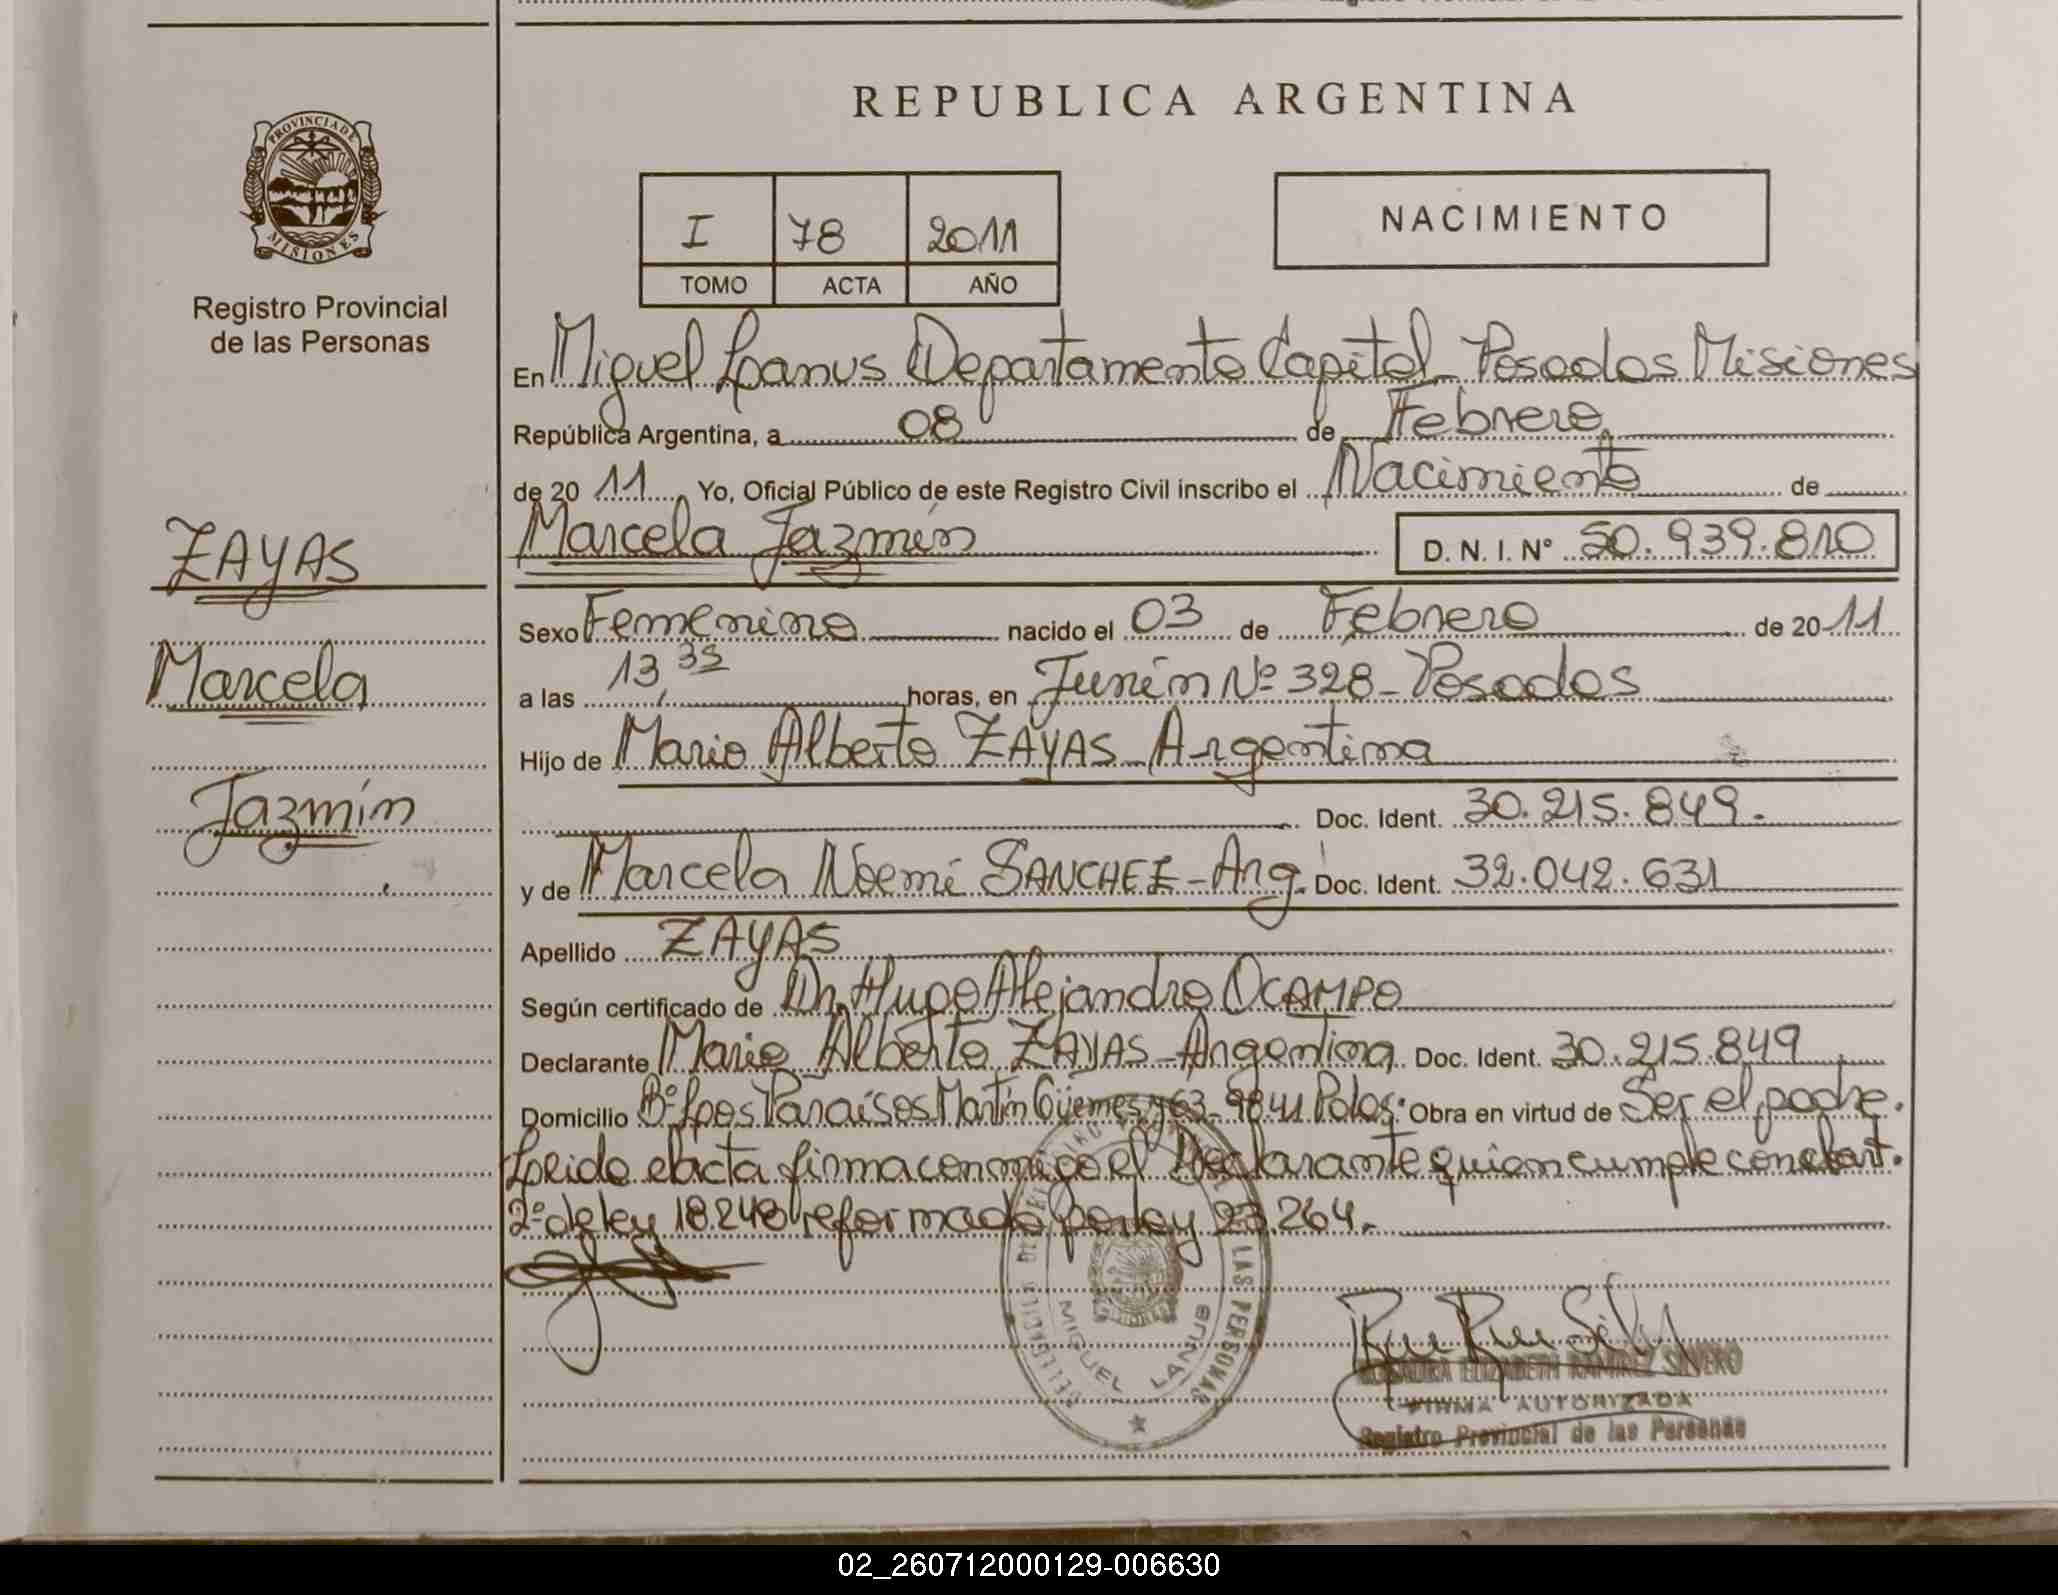 REPUBLICA ARGENTINA
PROVINCIA DE
MISIONES
Registro Provincial
de las Personas
I 78 2011
TOMO ACTA AÑO
NACIMIENTO
En Miguel Lanus Departamento Capital Posadas Misiones
República Argentina, a 08 de Febrero
de 2011 Yo, Oficial Público de este Registro Civil inscribo el Nacimiento de
Marcela Jazmín D. N. I. N° 50.939.810
ZAYAS
Marcela
Jazmín
Sexo Femenino nacido el 03 de Febrero de 2011
a las 13,35 horas, en Junín Nº 328 - Posadas
Hijo de Mario Alberto ZAYAS - Argentina
Doc. Ident. 30.215.849.
y de Marcela Noemí SANCHEZ - Arg. Doc. Ident. 32.042.631
Apellido ZAYAS
Según certificado de Dr. Hugo Alejandro OCAMPO
Declarante Mario Alberto ZAYAS - Argentina Doc. Ident. 30.215.849
Domicilio Bº Los Paraísos Martín Güemes y 63 - 9841 Pdas. Obra en virtud de Ser el padre.
Leida el acta firma conmigo el Declarante quien cumple con el art.
2º de ley 18.248 reformado por ley 23.264.
LAS PERSONAS
MIGUEL LANUS
ELIZABETH RAMIREZ SILVERO
FIRMA AUTORIZADA
Registro Provincial de las Personas
02_260712000129-006630